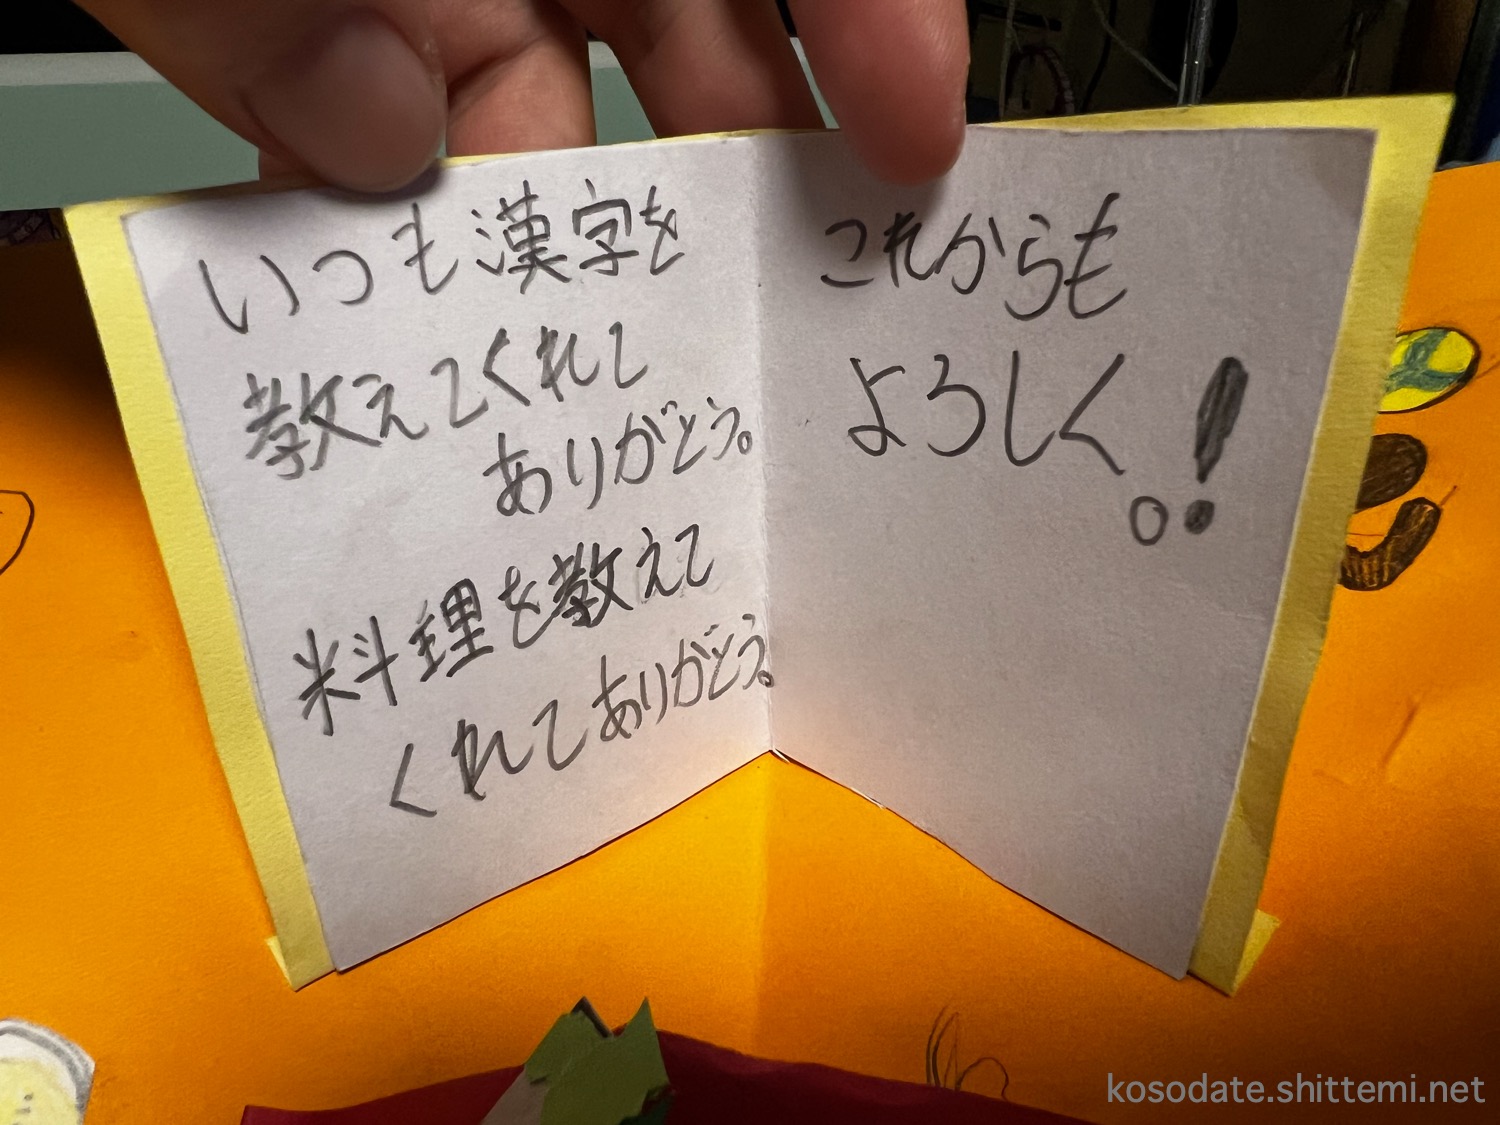 いつも漢字を
教えてくれて
ありがとう。
料理を教えて
くれてありがとう。
これからも
よろしく。!
kosodate.shittemi.net